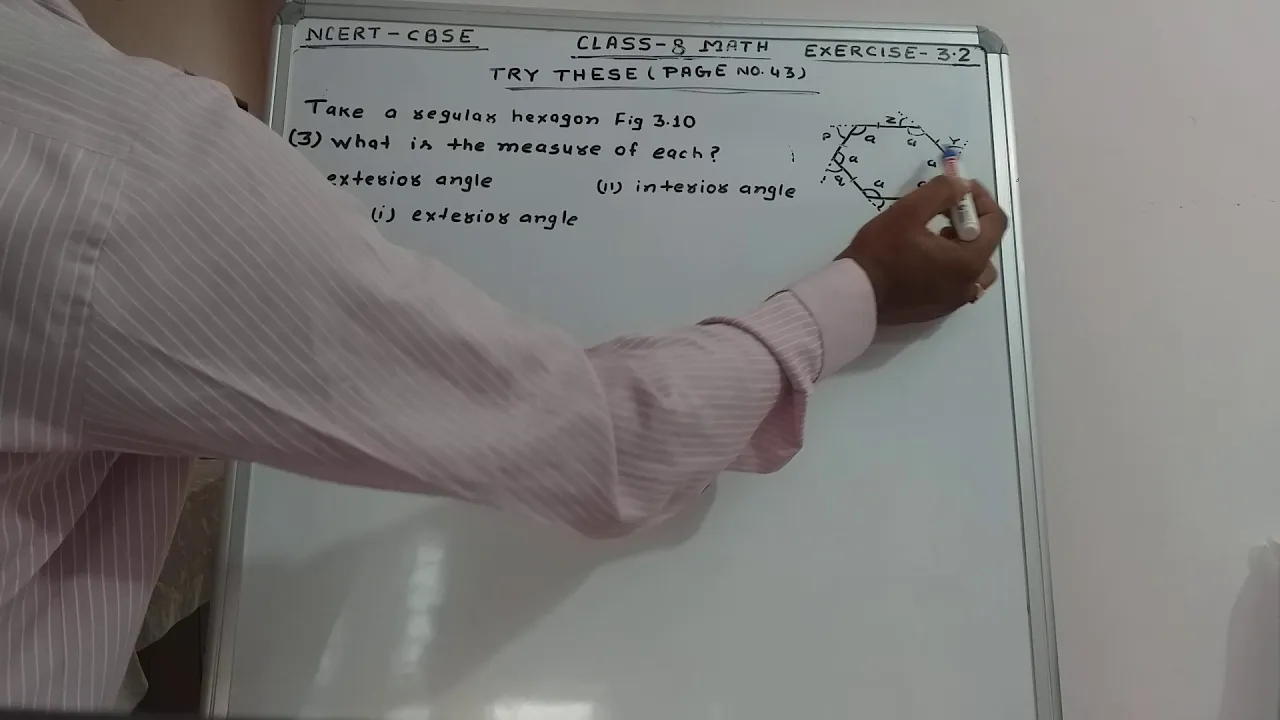 NCERT - CBSE
CLASS - 8 MATH
EXERCISE - 3.2
TRY THESE (PAGE NO. 43)
Take a regular hexagon Fig 3.10
(3) What is the measure of each?
exterior angle (ii) interior angle
(i) exterior angle
P a z r a y
a a
q a